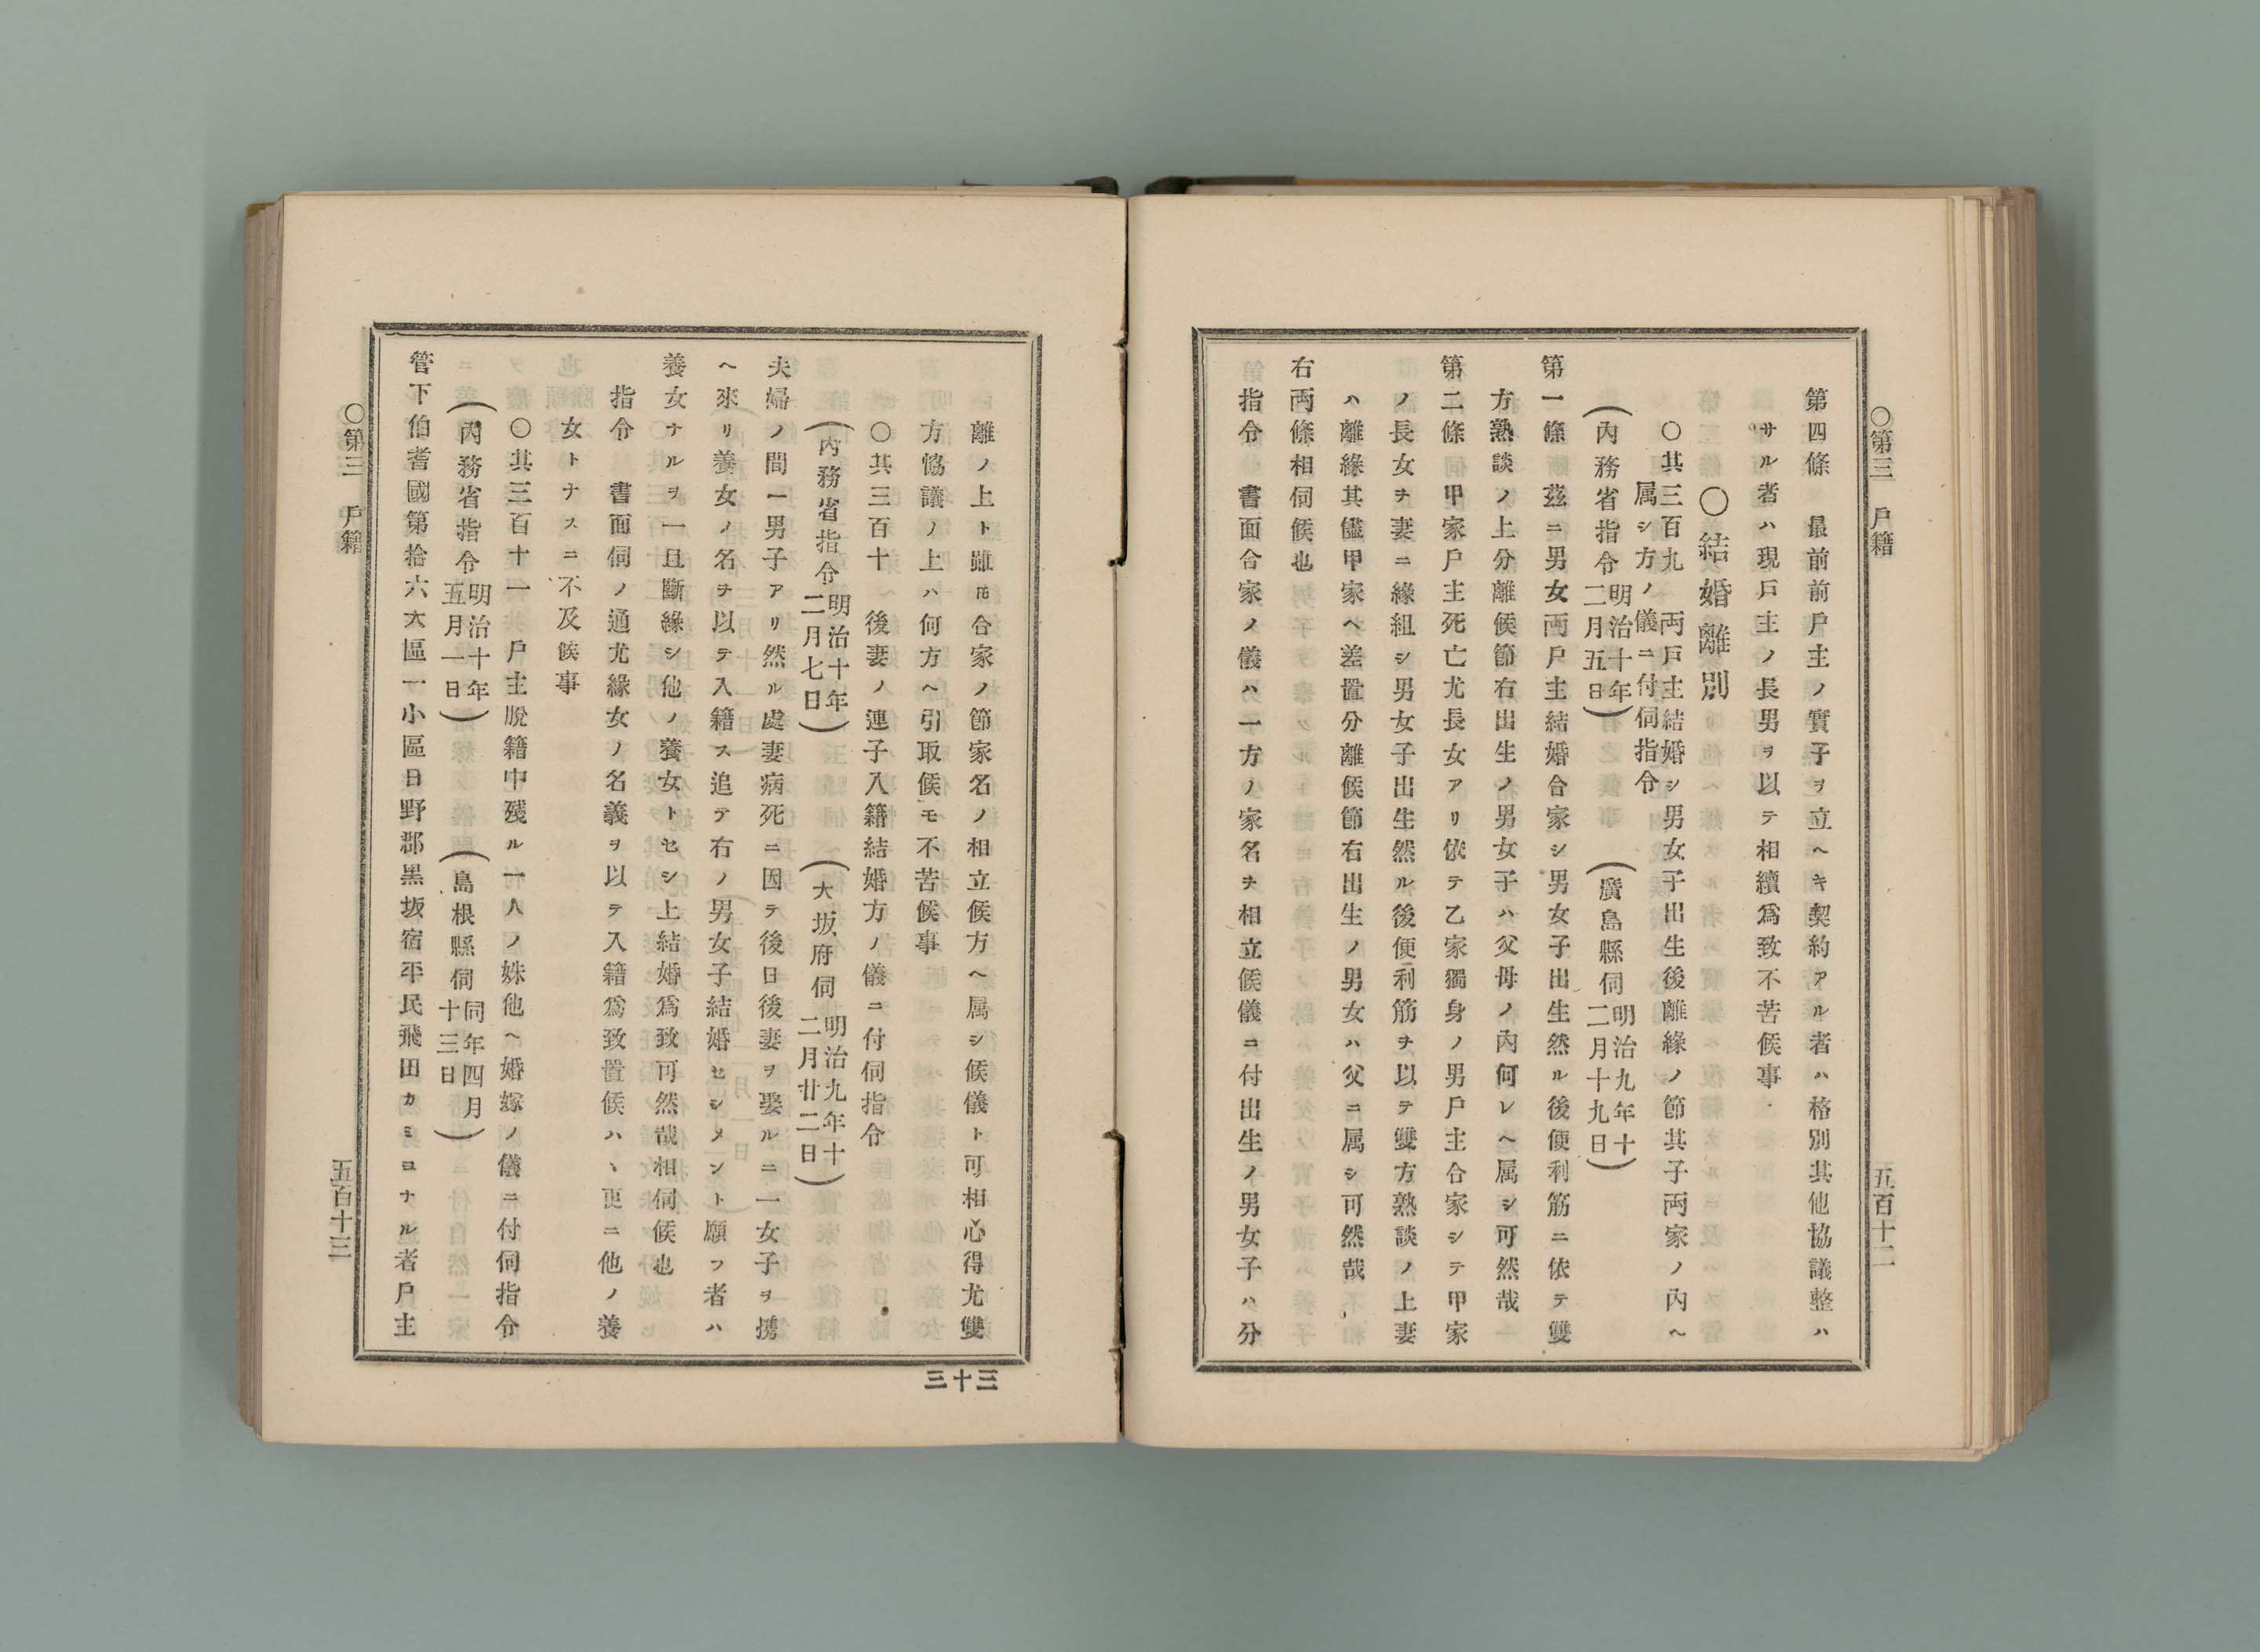 ○第三　戸籍　五百十二
第四條　最前前戸主ノ實子ヲ立ヘキ契約アル者ハ格別其他協議整ハ
サル者ハ現戸主ノ長男ヲ以テ相續爲致不苦候事
○結婚離別
○其三百九　両戸主結婚シ男女子出生後離緣ノ節其子両家ノ内ヘ
属シ方ノ儀ニ付伺指令
（内務省指令明治十年二月五日）　（廣島縣伺明治九年十二月十九日）
第一條　茲ニ男女両戸主結婚合家シ男女子出生然ル後便利筋ニ依テ雙
方熟談ノ上分離候節右出生ノ男女子ハ父母ノ内何レヘ属シ可然哉
第二條　甲家戸主死亡尤長女アリ依テ乙家獨身ノ男戸主合家シテ甲家
ノ長女ヲ妻ニ緣組シ男女子出生然ル後便利筋ヲ以テ雙方熟談ノ上妻
ハ離緣其儘甲家ヘ差置分離候節右出生ノ男女ハ父ニ属シ可然哉
右両條相伺候也
指令　書面合家ノ儀ハ一方ノ家名ヲ相立候儀ニ付出生ノ男女子ハ分
離ノ上ト雖𪜈合家ノ節家名ノ相立候方ヘ属シ候儀ト可相心得尤雙
方恊議ノ上ハ何方ヘ引取候モ不苦候事
○其三百十　後妻ノ連子入籍結婚方ノ儀ニ付伺指令
（内務省指令明治十年二月七日）　（大坂府伺明治九年十二月廿二日）
夫婦ノ間一男子アリ然ル處妻病死ニ因テ後日後妻ヲ娶ルニ一女子ヲ携
ヘ來リ養女ノ名ヲ以テ入籍ス追テ右ノ男女子結婚セシメント願フ者ハ
養女ナルヲ一旦斷緣シ他ノ養女トセシ上結婚爲致可然哉相伺候也
指令　書面伺ノ通尤緣女ノ名義ヲ以テ入籍爲致置候ハヽ更ニ他ノ養
女トナスニ不及候事
○其三百十一　戸主脫籍中殘ル一人ノ姝他ヘ婚嫁ノ儀ニ付伺指令
（内務省指令明治十年五月一日）　（島根縣伺同年四月十三日）
管下伯耆國第拾六大區一小區日野郡黒坂宿平民飛田カミヨナル者戸主
○第三　戸籍　五百十三
三十三